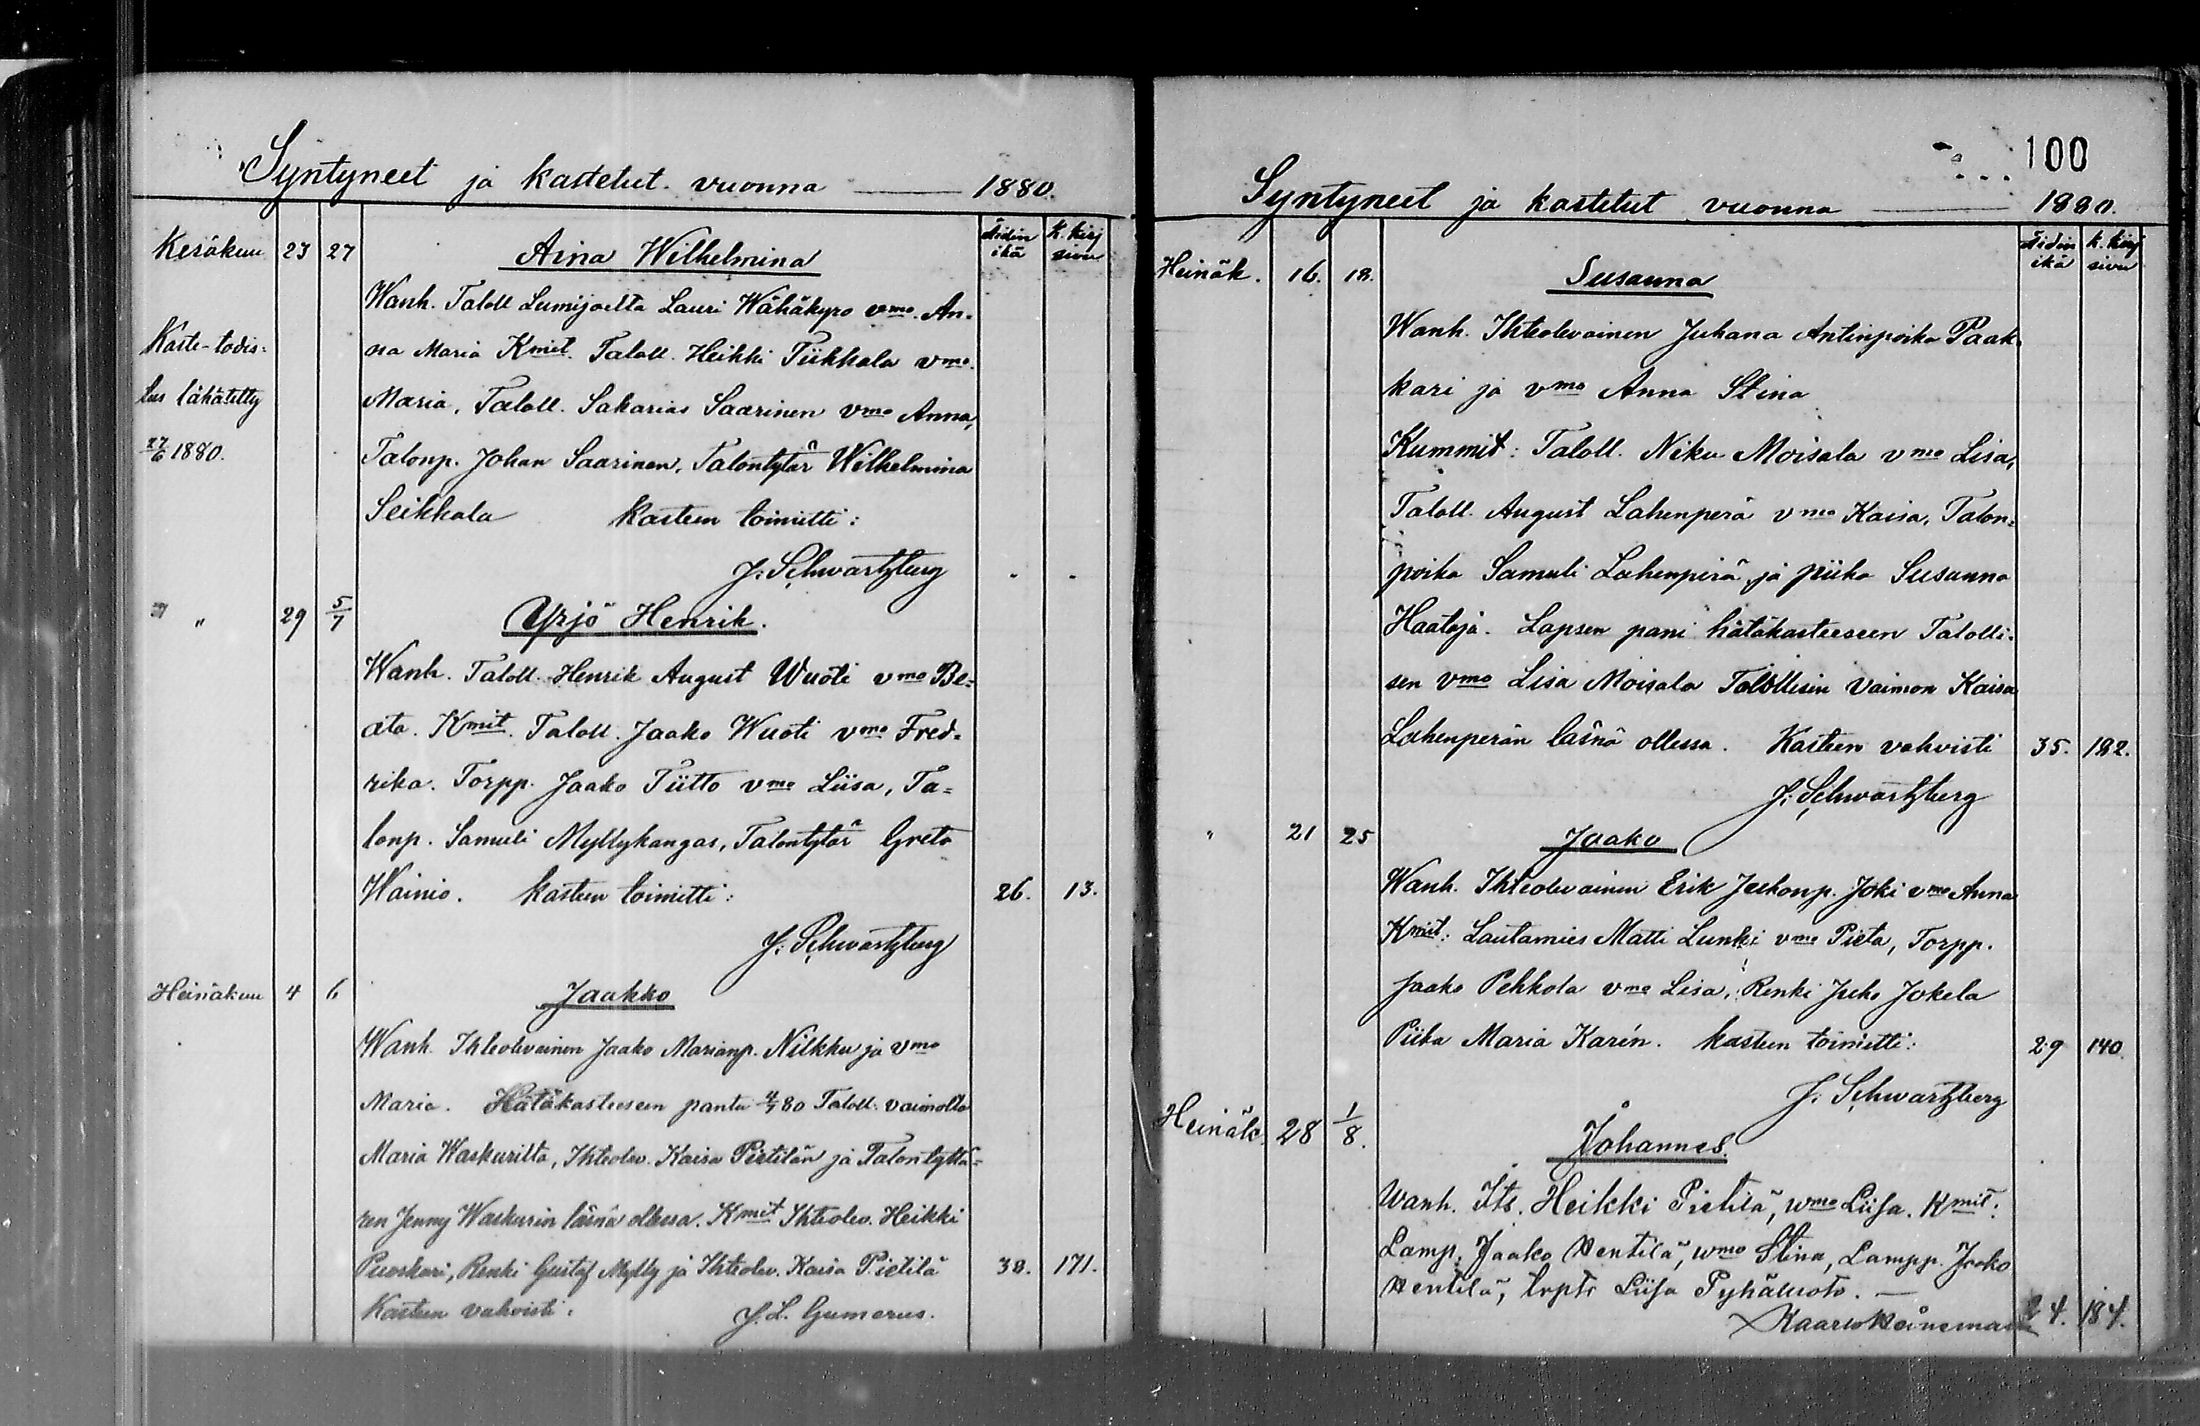 Syntyneet ja kastetut vuonna — 1880.
Äidin ikä
K. kirj sivu
Kesäkuu 23 27 Aina Wilhelmina
Wanh. Taloll Lumijoelta Lauri Wähäkyro vmo. An-
na Maria Kmit. Taloll. Heikki Tiikkala vmo.
Kaste-todis-
Maria, Taloll. Sakarias Saarinen vmo Anna,
tus lähätetty
27/6 1880.
Talonp. Johan Saarinen, Talontytär Wilhelmina
Seikkala Kasteen toimitti:
J. Schwartzberg
" " 29 5/7 Yrjö Henrik.
Wanh. Taloll. Henrik August Wuoti vmo Be-
ata. Kmit. Taloll. Jaako Wuoti vmo Fred-
rika. Torpp. Jaako Tiitto vmo Liisa, Ta-
lonp. Samuli Myllykangas, Talontytär Greta
Wainio. Kasteen toimitti: 26. 13.
J. Schwartzberg
Heinäkuu 4 6 Jaakko
Wanh. Ihteolevainen Jaako Marianp. Nilkku ja vmo
Maria. Hätäkasteeseen pantu 4/7 80 Taloll. vaimolta
Maria Waskurilta, Ihteolev. Kaisa Pietilän ja Talontyttä-
ren Jenny Waskurin läsnä ollessa. Kmit Ihteolev. Heikki
Puoskari, Renki Gustaf Mylly ja Ihteolev. Kaisa Pietilä 38. 171.
Kasteen vahvisti: J. L. Gumerus.
100
Syntyneet ja kastetut vuonna — 1880.
Äidin ikä
K. kirj sivu
Heinäk. 16. 18. Susanna
Wanh. Ihteolevainen Juhana Antinpoika Paak-
kari ja vmo Anna Stina
Kummit: Taloll. Niku Moisala vmo Lisa,
Taloll. August Lahenperä vmo Kaisa, Talon-
poika Samuli Lahenperä ja piika Susanna
Haataja. Lapsen pani hätäkasteeseen Talolli-
sen vmo Lisa Moisala Talollisen Vaimon Kaisa
Lahenperän läsnä ollessa. Kasteen vahvisti 35. 182.
J. Schwartzberg
" 21 25 Jaako
Wanh. Ihteolevainen Erik Juhonp. Joki vmo Anna
Kmit: Lautamies Matti Lunki vmo Pieta, Torpp.
Jaako Pehkola vmo Lisa, Renki Juho Jokela
Piika Maria Karén. Kasteen toimitti: 29 140.
J. Schwartzberg
Heinäk. 28 1/8. Johannes.
Wanh. Its. Heikki Pietilä, wmo Liisa. Kmit:
Lamp. Jaako Hentilä, wmo Stina, Lampp. Jaako
Hentilä, Liisa Pyhäluoto. —
Kaarlo Heineman 24. 184.